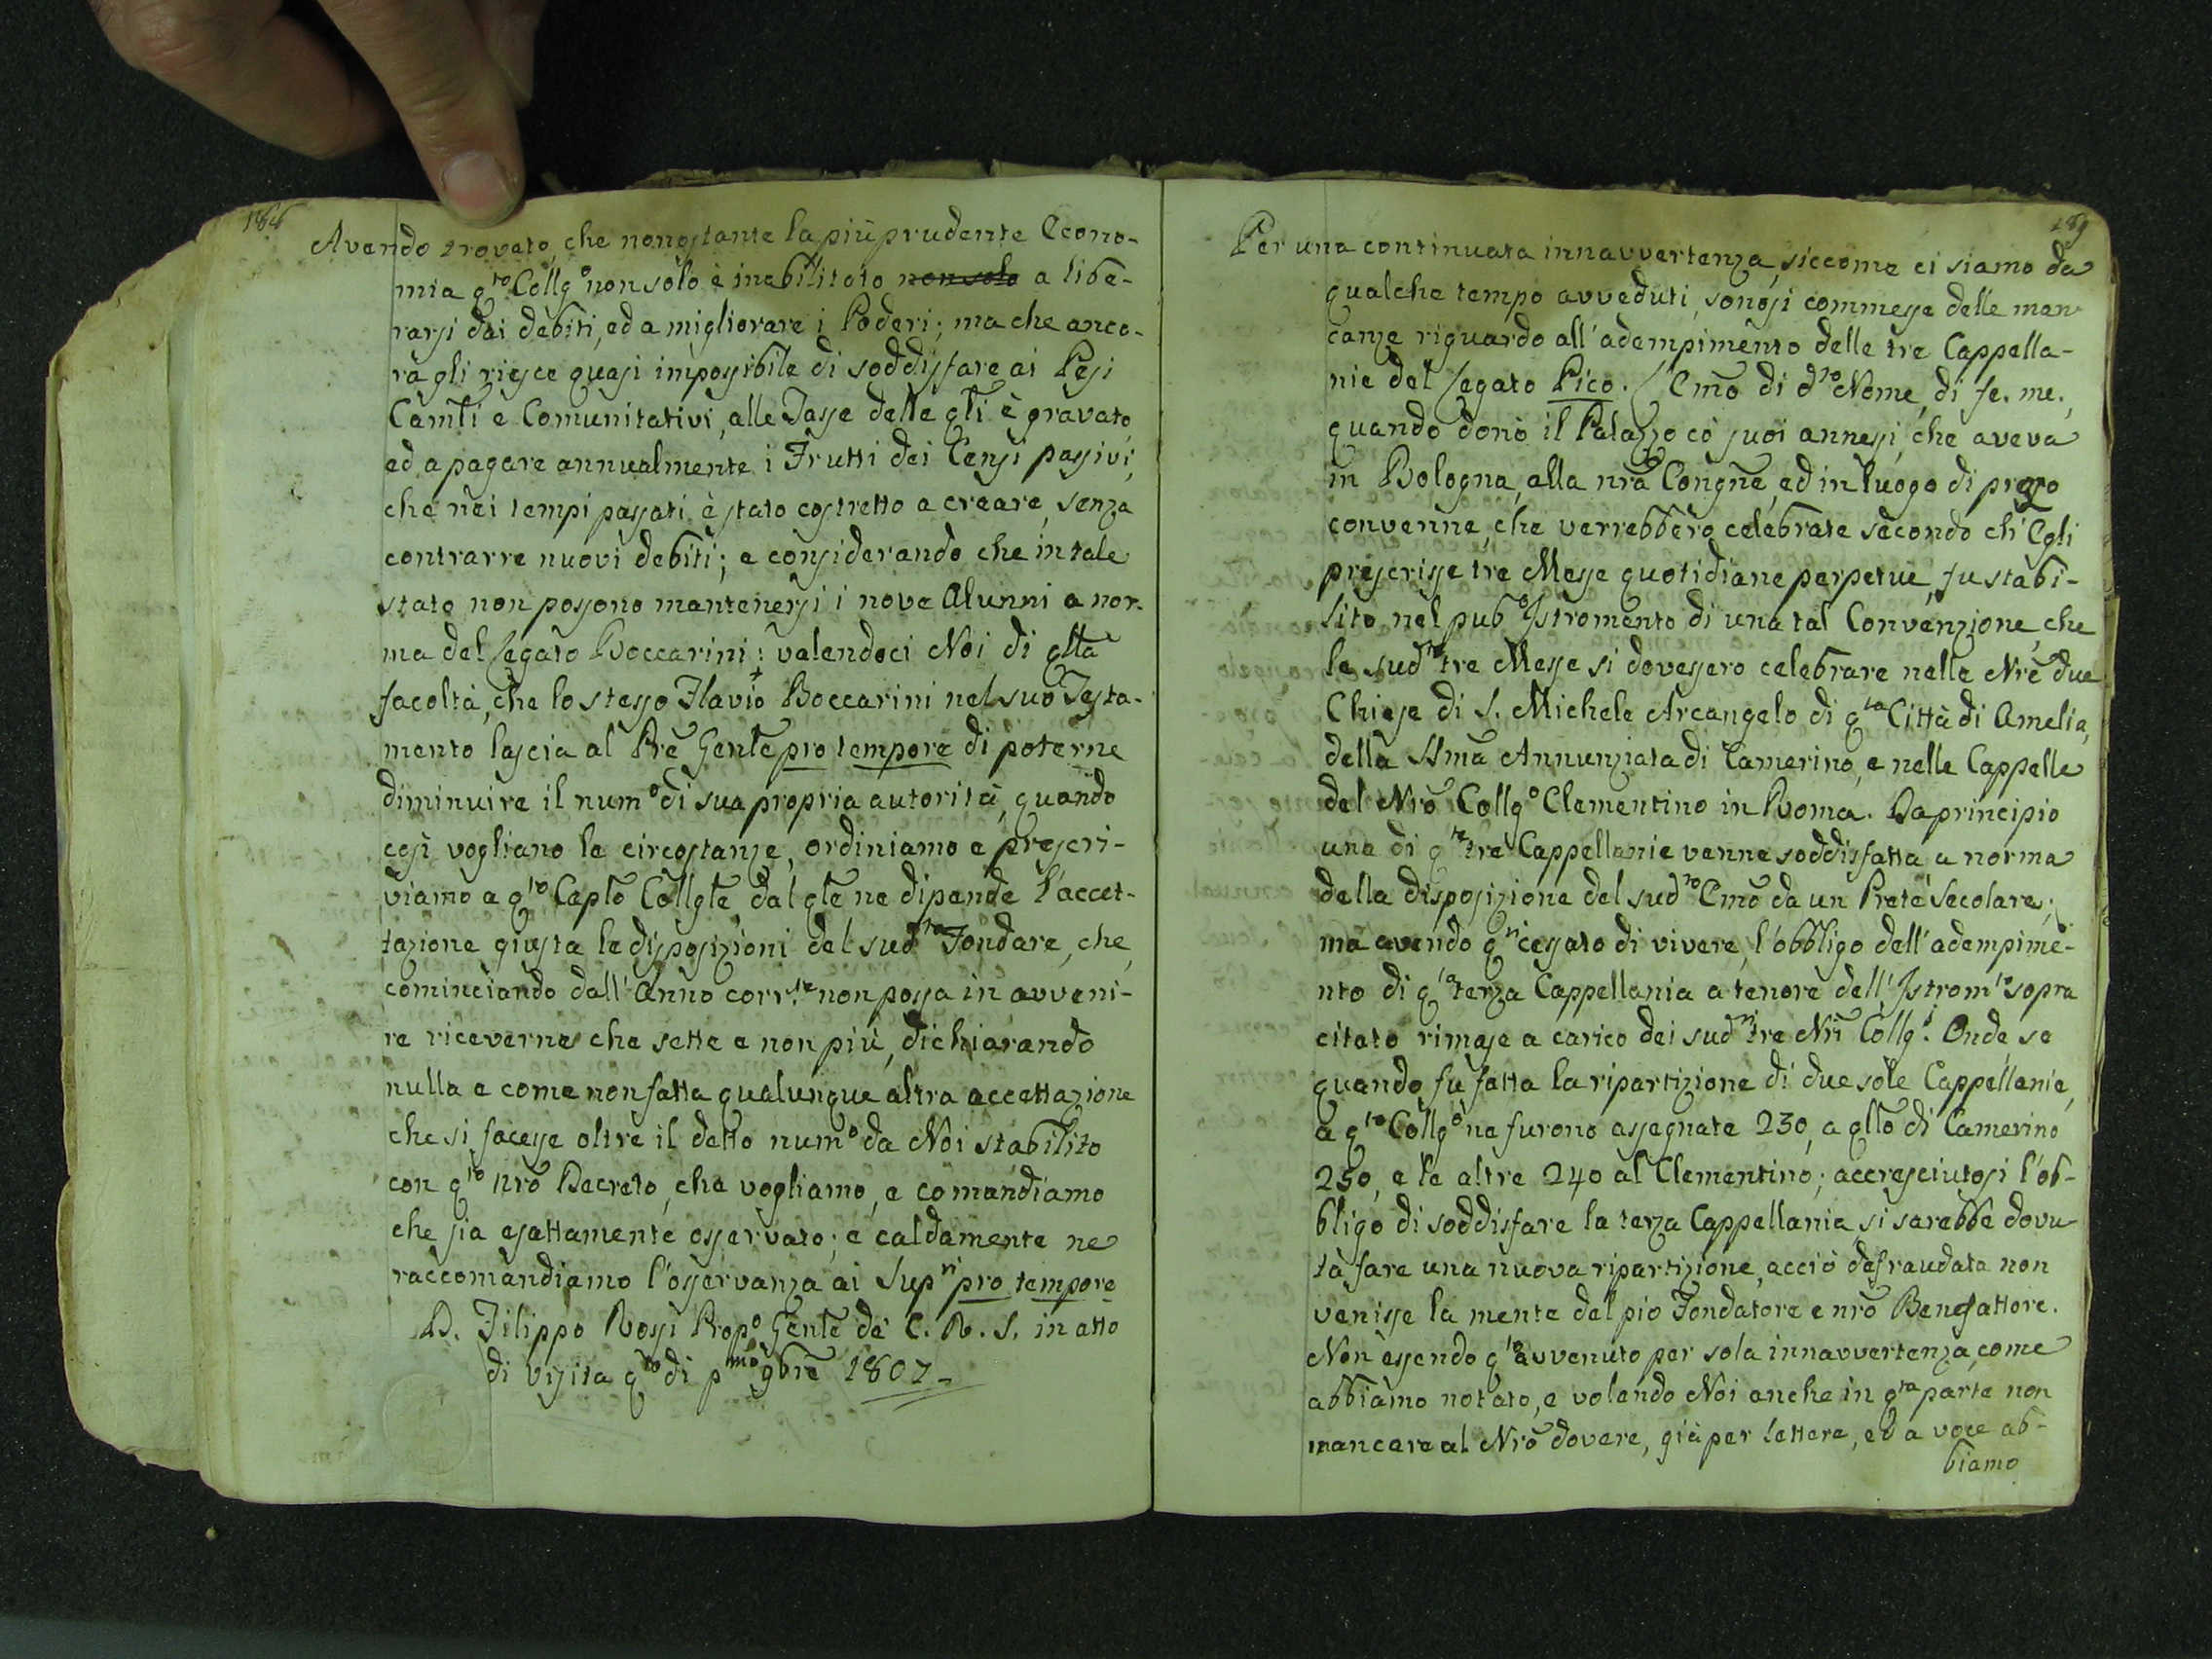 188
Avendo trovato, che nonostante la più prudente Econo-
mia q.to Collg.o non solo è inabilitato non solo a libe-
rarsi dai debiti, ed a migliorare i Poderi; ma che anco-
ra gli riesce quasi impossibile di soddisfare ai Pesi
Camli e Comunitativi, alle Tasse delle qli è gravato,
ed a pagare annualmente i Frutti dei Censi passivi,
che nei tempi passati è stato costretto a creare, senza
contrarre nuovi debiti; e considerando che in tale
stato non possono mantenersi i nove Alunni a nor-
ma del Legato Boccarini; valendoci Noi di qlla
facoltà, che lo stesso Flavio Boccarini nel suo Testa-
mento lascia al Pre Genle pro tempore di poterne
diminuire il num.o di sua propria autorità, quando
così vogliano le circostanze, ordiniamo e prescri-
viamo a q.to Caplo Collgle, dal qle ne dipende l'accet-
tazione giusta le disposizioni del sud.to Fondare, che,
cominciando dall'Anno corr.te non possa in avveni-
re riceverne che sette e non più, dichiarando
nulla e come non fatta qualunque altra accettazione
che si facesse oltre il detto num.o da Noi stabilito
con q.to nro Decreto, che vogliamo, e comandiamo
che sia esattamente osservato; e caldamente ne
raccomandiamo l'osservanza ai Sup.ri pro tempore
D. Filippo Rossi Prop.o Genle de' C. R. S. in atto
di visita q.to di p.mo 9bre 1807
189
Per una continuata innavvertenza, siccome ci siamo da
qualche tempo avveduti, sonosi commesse delle man-
canze riguardo all'adempimento delle tre Cappella-
nie del Legato Pico. L'Emo di d.to Nome, di fe. me.,
quando donò il Palazzo co' suoi annessi, che aveva
in Bologna, alla nra Congne, ed in luogo di prezzo
convenne, che verrebbero celebrate secondo ch'Egli
prescrisse tre Messe quotidiane perpetue, fu stabi-
lito nel pub.o Istromento di una tal Convenzione, che
le sud.te tre Messe si dovessero celebrare nelle Nre due
Chiese di S. Michele Arcangelo di q.ta Città di Amelia,
della SSma Annunziata di Camerino, e nelle Cappelle
del Nro Collg.o Clementino in Roma. Da principio
una di q.te tre Cappellanie venne soddisfatta a norma
della disposizione del sud.to Emo da un Prete Secolare;
ma avendo q.ti cessato di vivere, l'obbligo dell'adempime-
nto di q.ta terza Cappellania a tenore dell'Istrom.to sopra
citato rimase a carico dei sud.ti tre Nri Collg.i Onde se
quando fu fatta la ripartizione di due sole Cappellanie,
a q.to Collg.o ne furono assegnate 230, a qllo di Camerino
250, e le altre 240 al Clementino; accresciutosi l'ob-
bligo di soddisfare la terza Cappellania, si sarebbe dovu-
ta fare una nuova ripartizione, acciò defraudata non
venisse la mente del pio Fondatore e nro Benefattore.
Non essendo q.to avvenuto per sola innavvertenza, come
abbiamo notato, e volendo Noi anche in q.ta parte non
mancare al Nro dovere, già per lettere, ed a voce ab-
biamo